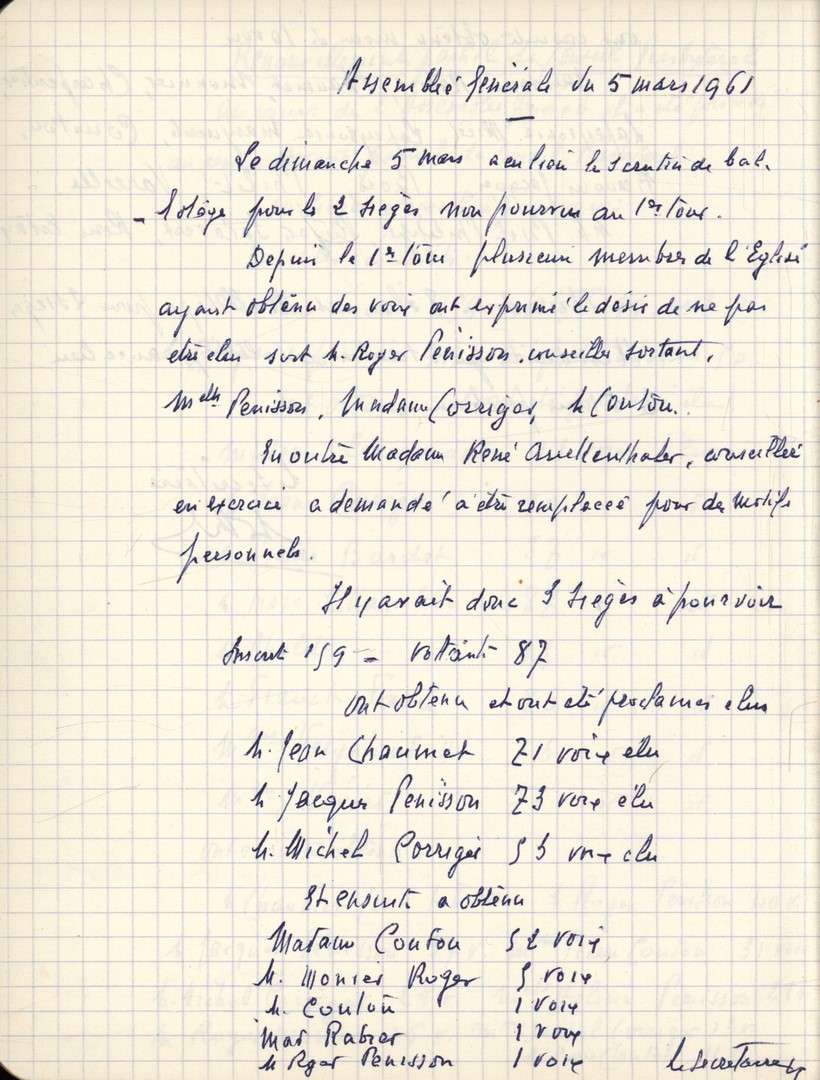 Assemblée Générale du 5 mars 1961
Le dimanche 5 mars a eu lieu le scrutin de bal-
- lotage pour les 2 sièges non pourvus au 1er tour.
Depuis le 1er tour plusieurs membres de l'Eglise
ayant obtenu des voix ont exprimé le désir de ne pas
être élus soit M. Roger Pénisson, conseiller sortant,
Melle Penisson, Madame Corriger, M Couton.
En outre Madame René, conseillère
en exercice a demandé à être remplacée pour des motifs
personnels.
Il y avait donc 3 sièges à pourvoir
Inscrits 159 - votants 87
ont obtenu et ont été proclamés élus
M. Jean Chaumet 71 voix élu
M Jacques Penisson 73 voix élu
M. Michel Corriger 53 voix élu
Et ensuite a obtenu
Madame Couton 52 voix
M. Monier Roger 5 voix
M. Couton 1 voix
Mad Rabier 1 voix
M Roger Penisson 1 voix
Le secrétaire